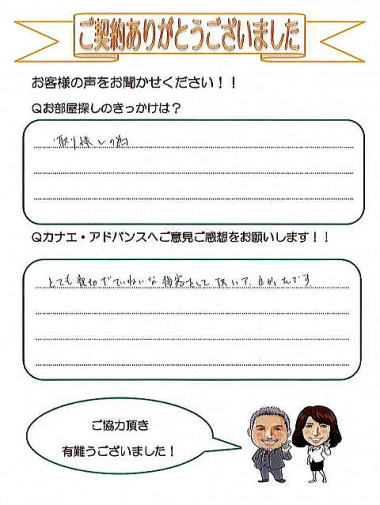 ご契約ありがとうございました
お客様の声をお聞かせください！！
Qお部屋探しのきっかけは？
取り壊しの為
Qカナエ・アドバンスへご意見ご感想をお願いします！！
とても親切でていねいな接客をして頂いて、良かったです
ご協力頂き
有難うございました！